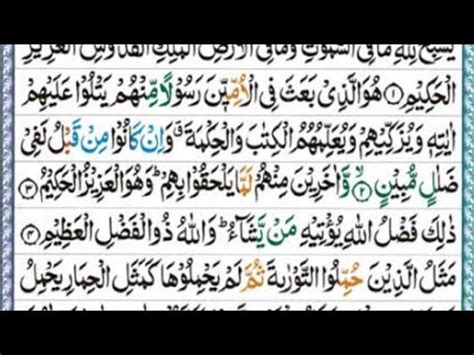 يُسَبِّحُ لِلّٰهِ مَا فِى السَّمٰوٰتِ وَمَا فِى الْاَرْضِ الْمَلِكِ الْقُدُّوْسِ الْعَزِيْزِ
الْحَكِيْمِ ۝۱ هُوَ الَّذِىْ بَعَثَ فِى الْاُمِّيّٖنَ رَسُوْلًا مِّنْهُمْ يَتْلُوْا عَلَيْهِمْ
اٰيٰتِهٖ وَيُزَكِّيْهِمْ وَيُعَلِّمُهُمُ الْكِتٰبَ وَالْحِكْمَةَ ۗ وَاِنْ كَانُوْا مِنْ قَبْلُ لَفِىْ
ضَلٰلٍ مُّبِيْنٍ ۝۲ۙ وَّاٰخَرِيْنَ مِنْهُمْ لَمَّا يَلْحَقُوْا بِهِمْ ؕ وَهُوَ الْعَزِيْزُ الْحَكِيْمُ ۝۳
ذٰلِكَ فَضْلُ اللّٰهِ يُؤْتِيْهِ مَنْ يَّشَآءُ ؕ وَاللّٰهُ ذُو الْفَضْلِ الْعَظِيْمِ ۝۴
مَثَلُ الَّذِيْنَ حُمِّلُوا التَّوْرٰىةَ ثُمَّ لَمْ يَحْمِلُوْهَا كَمَثَلِ الْحِمَارِ يَحْمِلُ